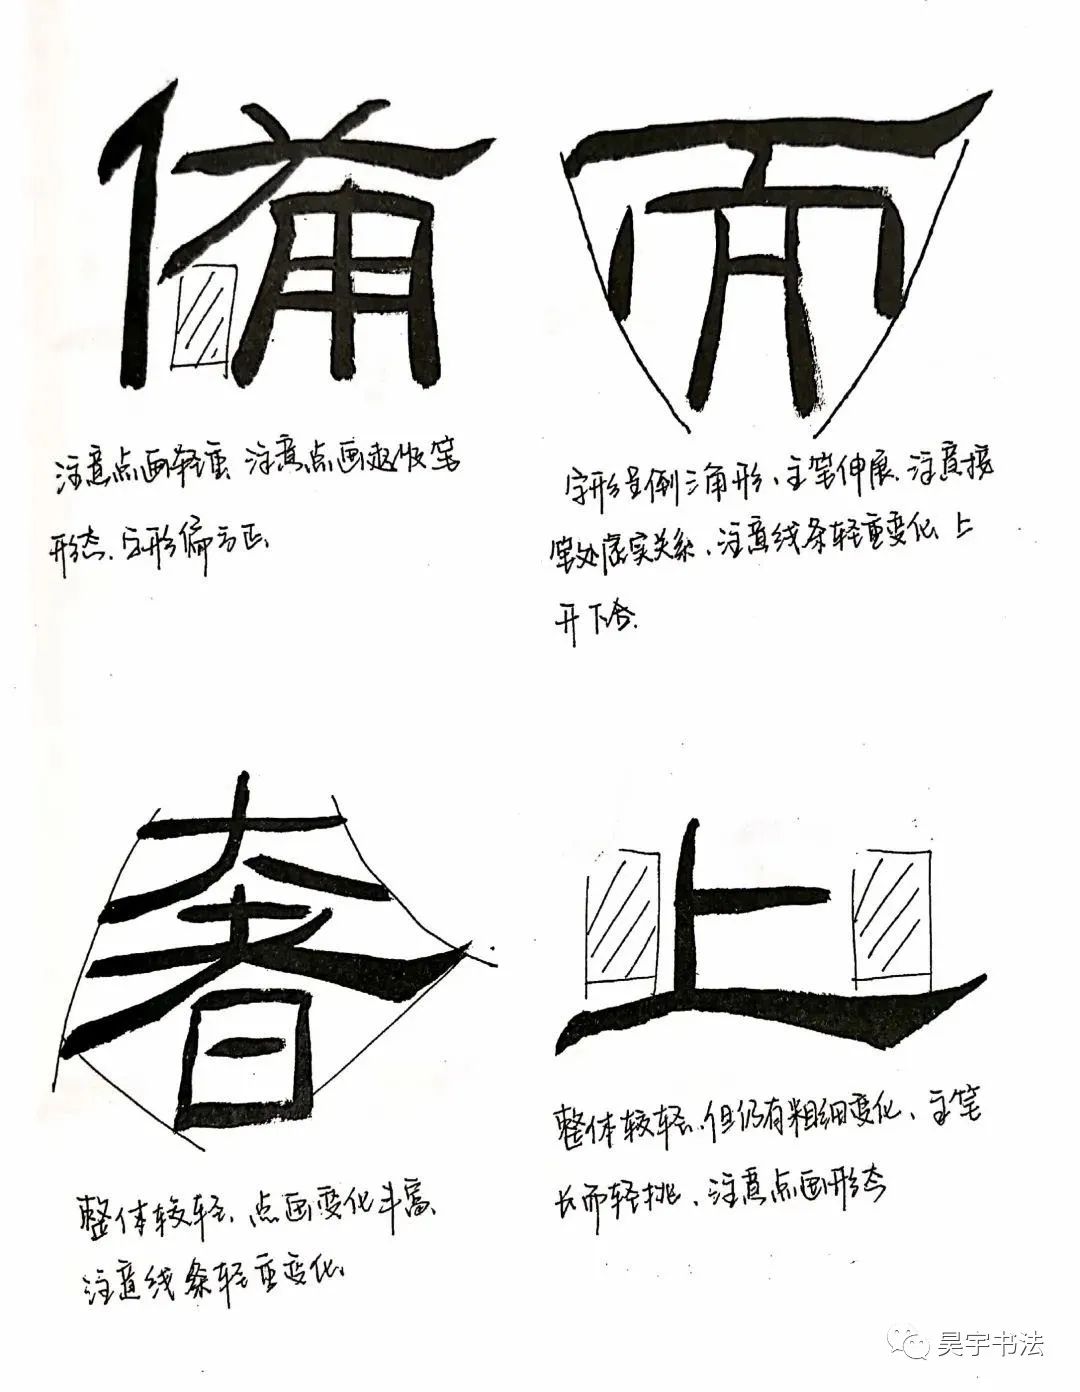 備
注意点画轻重、注意点画起收笔
形态、字形偏方正、
而
字形呈倒三角形、主笔伸展、注意接
笔处虚实关系、注意线条轻重变化、上
开下合.
奢
整体较轻、点画变化丰富、
注意线条轻重变化、
上
整体较轻、但仍有粗细变化、主笔
长而轻挑、注意点画形态
昊宇书法